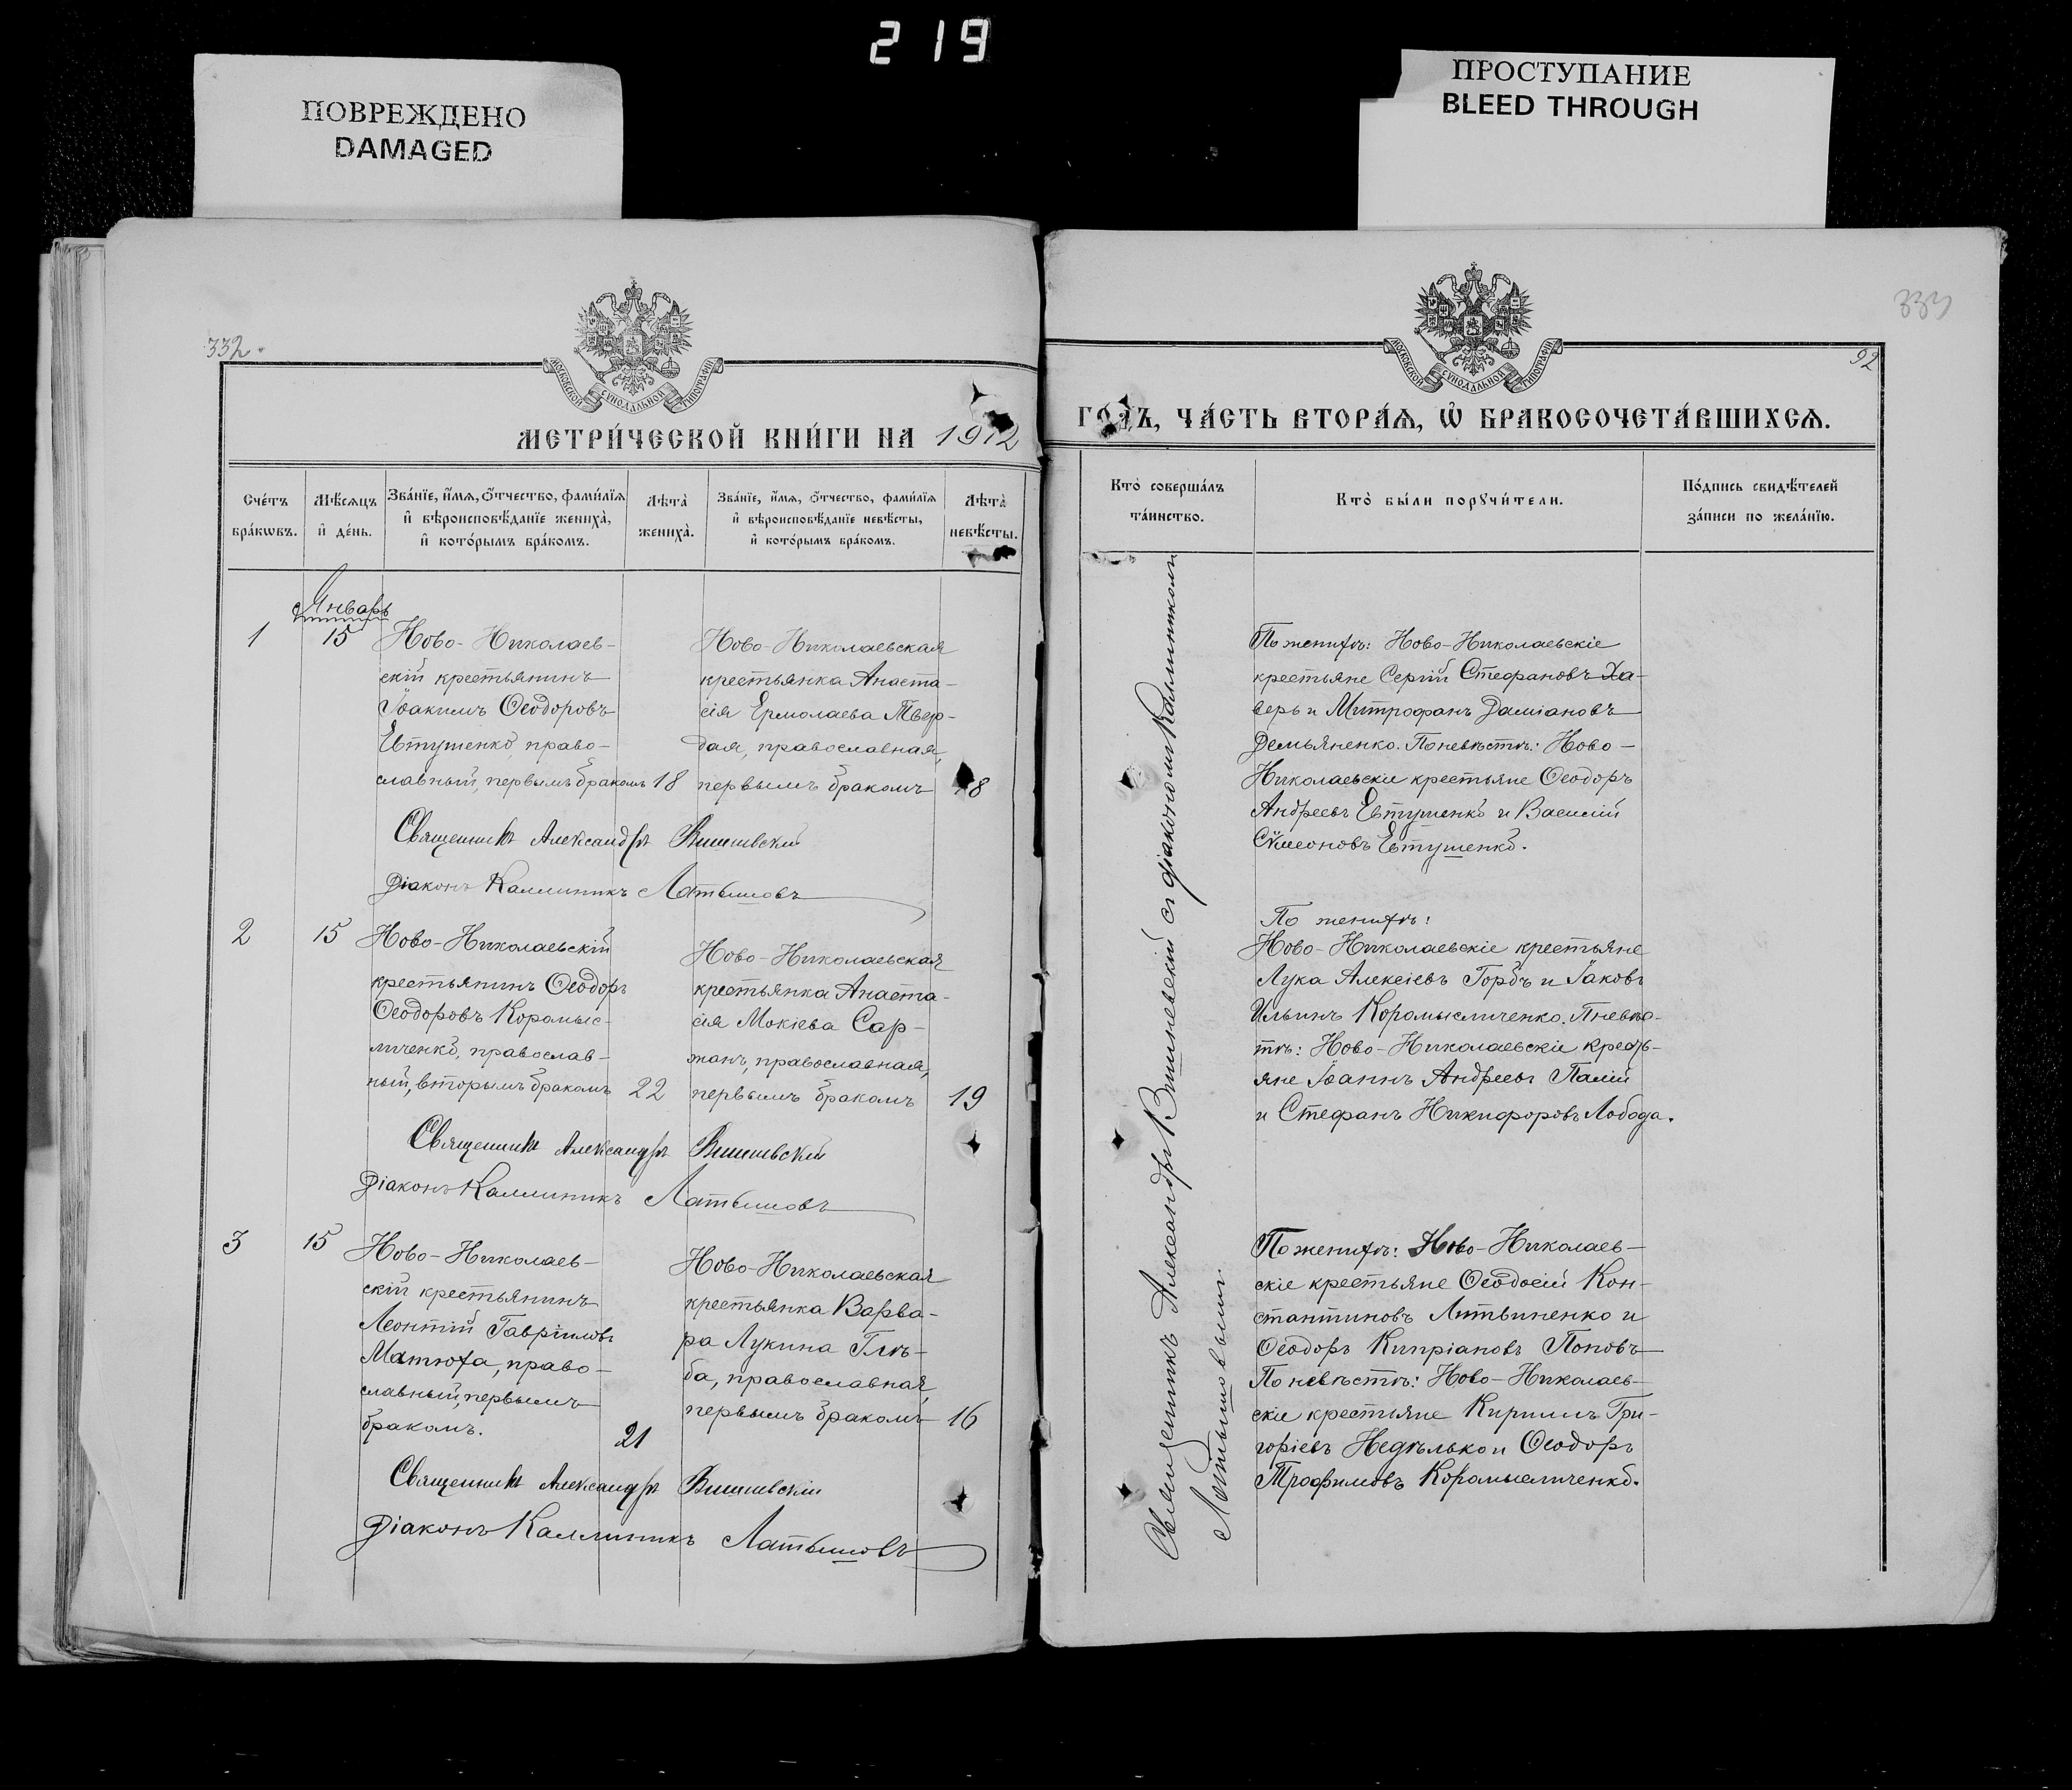 219
ПОВРЕЖДЕНО
DAMAGED
ПРОСТУПАНИЕ
BLEED THROUGH
332.
МОСКОВСКОЙ СѴНОДАЛЬНОЙ ТИПОГРАФІИ
МЕТРИ́ЧЕСКОЙ КНИ́ГИ НА 1912
Сче́тъ бра́кѡвъ.
Мѣ́сяцъ и҆ де́нь.
Зва́нїе, и҆́мѧ, ѻ҆́тчество, фами́лїѧ
и҆ вѣроисповѣ́данїе жениха̀,
и҆ кото́рымъ бра́комъ.
Лѣ́та̀ жениха̀.
Зва́нїе, и҆́мѧ, ѻ҆́тчество, фами́лїѧ
и҆ вѣроисповѣ́данїе невѣ́сты,
и҆ кото́рымъ бра́комъ.
Лѣ́та̀ невѣ́сты.
Январь
1
15
Ново-Николаев-
скій крестьянинъ
Іоакимъ Ѳеодоровъ
Евтушенко, право-
славный, первымъ бракомъ
18
Ново-Николаевская
крестьянка Анаста-
сія Ермолаева Твер-
дая, православная,
первымъ бракомъ
18
Священникъ Александръ Вишневскій
Діаконъ Каллиникъ Латышовъ
2
15
Ново-Николаевскій
крестьянинъ Ѳеодоръ
Ѳеодоровъ Коромыс-
личенко, православ-
ный, вторымъ бракомъ
22
Ново-Николаевская
крестьянка Анаста-
сія Мокіева Сар-
жанъ, православная,
первымъ бракомъ
19
Священникъ Александръ Вишневскій
Діаконъ Каллиникъ Латышовъ
3
15
Ново-Николаев-
скій крестьянинъ
Леонтій Гавріиловъ
Матюха, право-
славный, первымъ
бракомъ.
21
Ново-Николаевская
крестьянка Варва-
ра Лукина Глѣ-
ба, православная,
первымъ бракомъ
16
Священникъ Александръ Вишневскій
Діаконъ Каллиникъ Латышовъ
333
92
МОСКОВСКОЙ СѴНОДАЛЬНОЙ ТИПОГРАФІИ
ГО́ДЪ, ЧА́СТЬ ВТОРА́Ѧ, Ѡ҆ БРАКОСОЧЕТА́ВШИХСѦ.
Кто̀ соверша́лъ
та́инство.
Кто̀ бы́ли порꙋчи́тели.
По́дпись свидѣ́телей
за́писи по жела́нїю.
Священникъ Александръ Вишневскій съ діакономъ Каллиникомъ
Латышовымъ.
По женихѣ: Ново-Николаевскіе
крестьяне Сергій Стефановъ Ха-
верь и Митрофанъ Даміановъ
Демьяненко. По невѣстѣ: Ново-
Николаевскіе крестьяне Ѳеодоръ
Андреевъ Евтушенко и Василій
Сѵмеоновъ Евтушенко.
По женихѣ:
Ново-Николаевскіе крестьяне
Лука Алексіевъ Горбъ и Іаковъ
Ильинъ Коромысличенко. П невѣс-
тѣ: Ново-Николаевскіе кресть-
яне Іоаннъ Андреевъ Палій
и Стефанъ Никифоровъ Лобода.
По женихѣ: Ново-Николаев-
скіе крестьяне Ѳеодосій Кон-
стантиновъ Литвиненко и
Ѳеодоръ Кипріановъ Поповъ
По невѣстѣ: Ново-Николаев-
скіе крестьяне Кириллъ Гри-
горіевъ Недѣлько и Ѳеодоръ
Трофимовъ Коромысличенко.